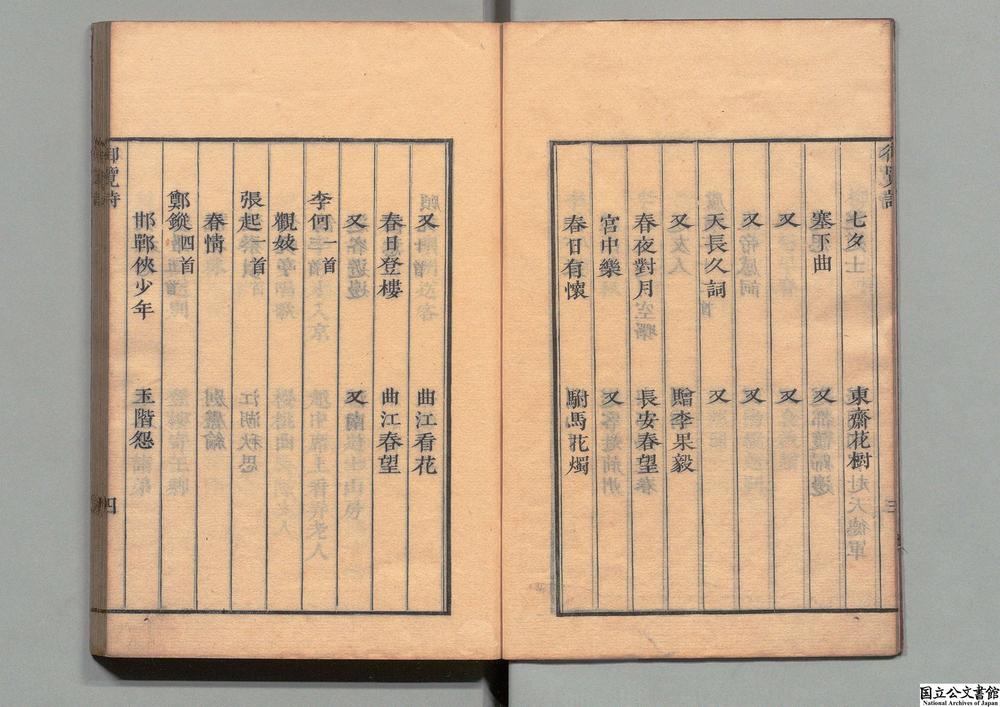 七夕 東齋花樹
塞下曲 又
又 又
又 又
天長久詞 又
又 贈李果毅
春夜對月 長安春望
宮中樂 又
春日有懷 駙馬花燭
又 曲江看花
春日登樓 曲江春望
又 又
李何一首
觀妓
張起一首
春情
鄭鏦四首
邯鄲俠少年 玉階怨
御覽詩
三
四
国立公文書館
National Archives of Japan